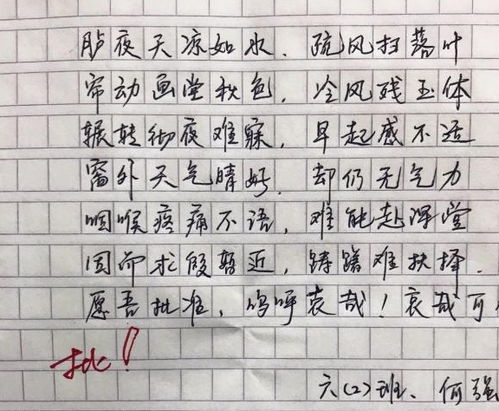 胪夜天凉如水，疏风扫落叶
帘动画堂秋色，冷风残玉体
辗转彻夜难寐，早起感不适
窗外天气晴好，却仍无气力
咽喉疼痛不语，难能赴课堂
因而求假暂匠，踌躇难抉择．
愿吾批准，呜呼哀哉！哀哉可
批！
六(2)班、何强